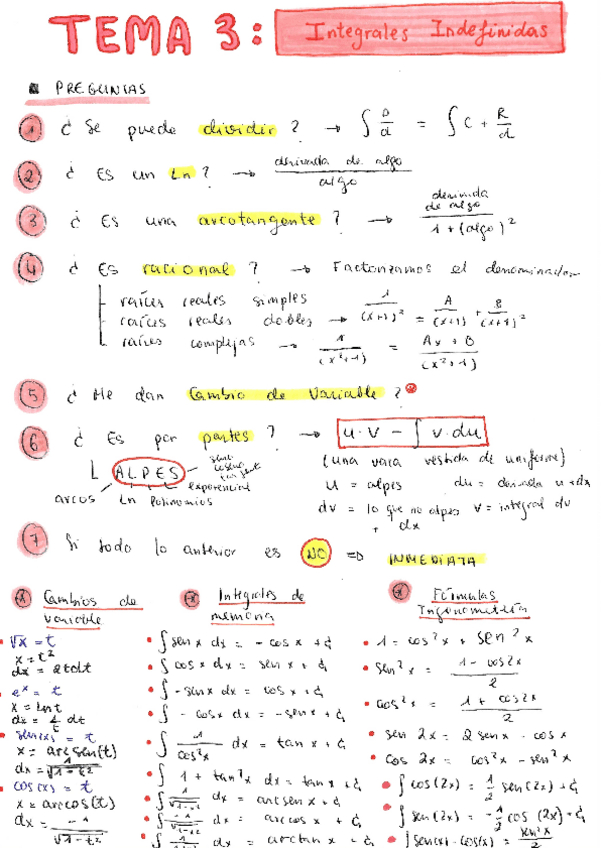 TEMA 3: Integrales Indefinidas
PREGUNTAS
1 ¿ Se puede dividir ? → ∫ D/d = ∫ C + R/d
2 ¿ Es un Ln ? → derivada de algo / algo
3 ¿ Es una arcotangente ? → derivada de algo / 1 + (algo)²
4 ¿ Es racional ? → Factorizamos el denominador
raíces reales simples
raíces reales dobles → 1/(x+1)² = A/(x+1) + B/(x+1)²
raíces complejas → 1/(x²+1) = Ax + B/(x²+1)
5 ¿ Me dan Cambio de Variable ?
6 ¿ Es por partes ? → u · v - ∫ v · du
(una vaca vestida de uniforme)
ALPES
seno
coseno
tangente
exponencial
arcos Ln Polinomios
u = alpes du = derivada u · dx
dv = lo que no alpes v = integral dv
+ dx
7 Si todo lo anterior es NO => INMEDIATA
Cambios de variable
√x = t
x = t²
dx = 2tdt
eˣ = t
x = Ln t
dx = 1/t dt
sen(x) = t
x = arcsen(t)
dx = 1/√1-t²
cos(x) = t
x = arccos(t)
dx = -1/√1-t²
Integrales de memoria
∫ sen x dx = - cos x + C
∫ cos x dx = sen x + C
∫ -sen x dx = cos x + C
∫ - cos x dx = -sen x + C
∫ 1/cos²x dx = tan x + C
∫ 1 + tan²x dx = tan x + C
∫ 1/√1-x² dx = arcsen x + C
dx = arccos x + C
dx = arctan x + C
Fórmulas Trigonometría
1 = cos² x + sen² x
sen² x = 1 - cos2x / 2
cos² x = 1 + cos2x / 2
sen 2x = 2 sen x · cos x
cos 2x = cos² x - sen² x
∫ cos (2x) = 1/2 sen (2x) + C
∫ sen (2x) = -1/2 cos (2x) + C
∫ sen(x) · cos(x) = sen²x / 2